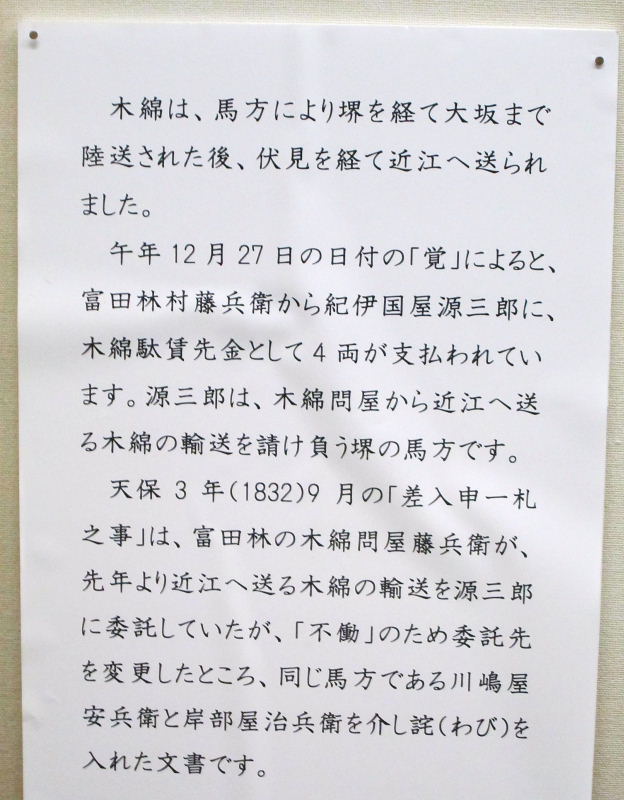 木綿は、馬方により堺を経て大坂まで
陸送された後、伏見を経て近江へ送られ
ました。
午年12月27日の日付の「覚」によると、
富田林村藤兵衛から紀伊国屋源三郎に、
木綿駄賃先金として4両が支払われてい
ます。源三郎は、木綿問屋から近江へ送
る木綿の輸送を請け負う堺の馬方です。
天保3年(1832)9月の「差入申一札
之事」は、富田林の木綿問屋藤兵衛が、
先年より近江へ送る木綿の輸送を源三郎
に委託していたが、「不働」のため委託先
を変更したところ、同じ馬方である川嶋屋
安兵衛と岸部屋治兵衛を介し詫(わび)を
入れた文書です。